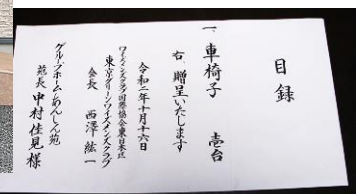 目録
一、車椅子 壱台
右、贈呈いたします
令和二年十月十六日
ワイズメンズクラブ国際協会東日本区
東京グリーンワイズメンズクラブ
会長 西澤紘一
グループホームあんしん苑
苑長 中村佳見様